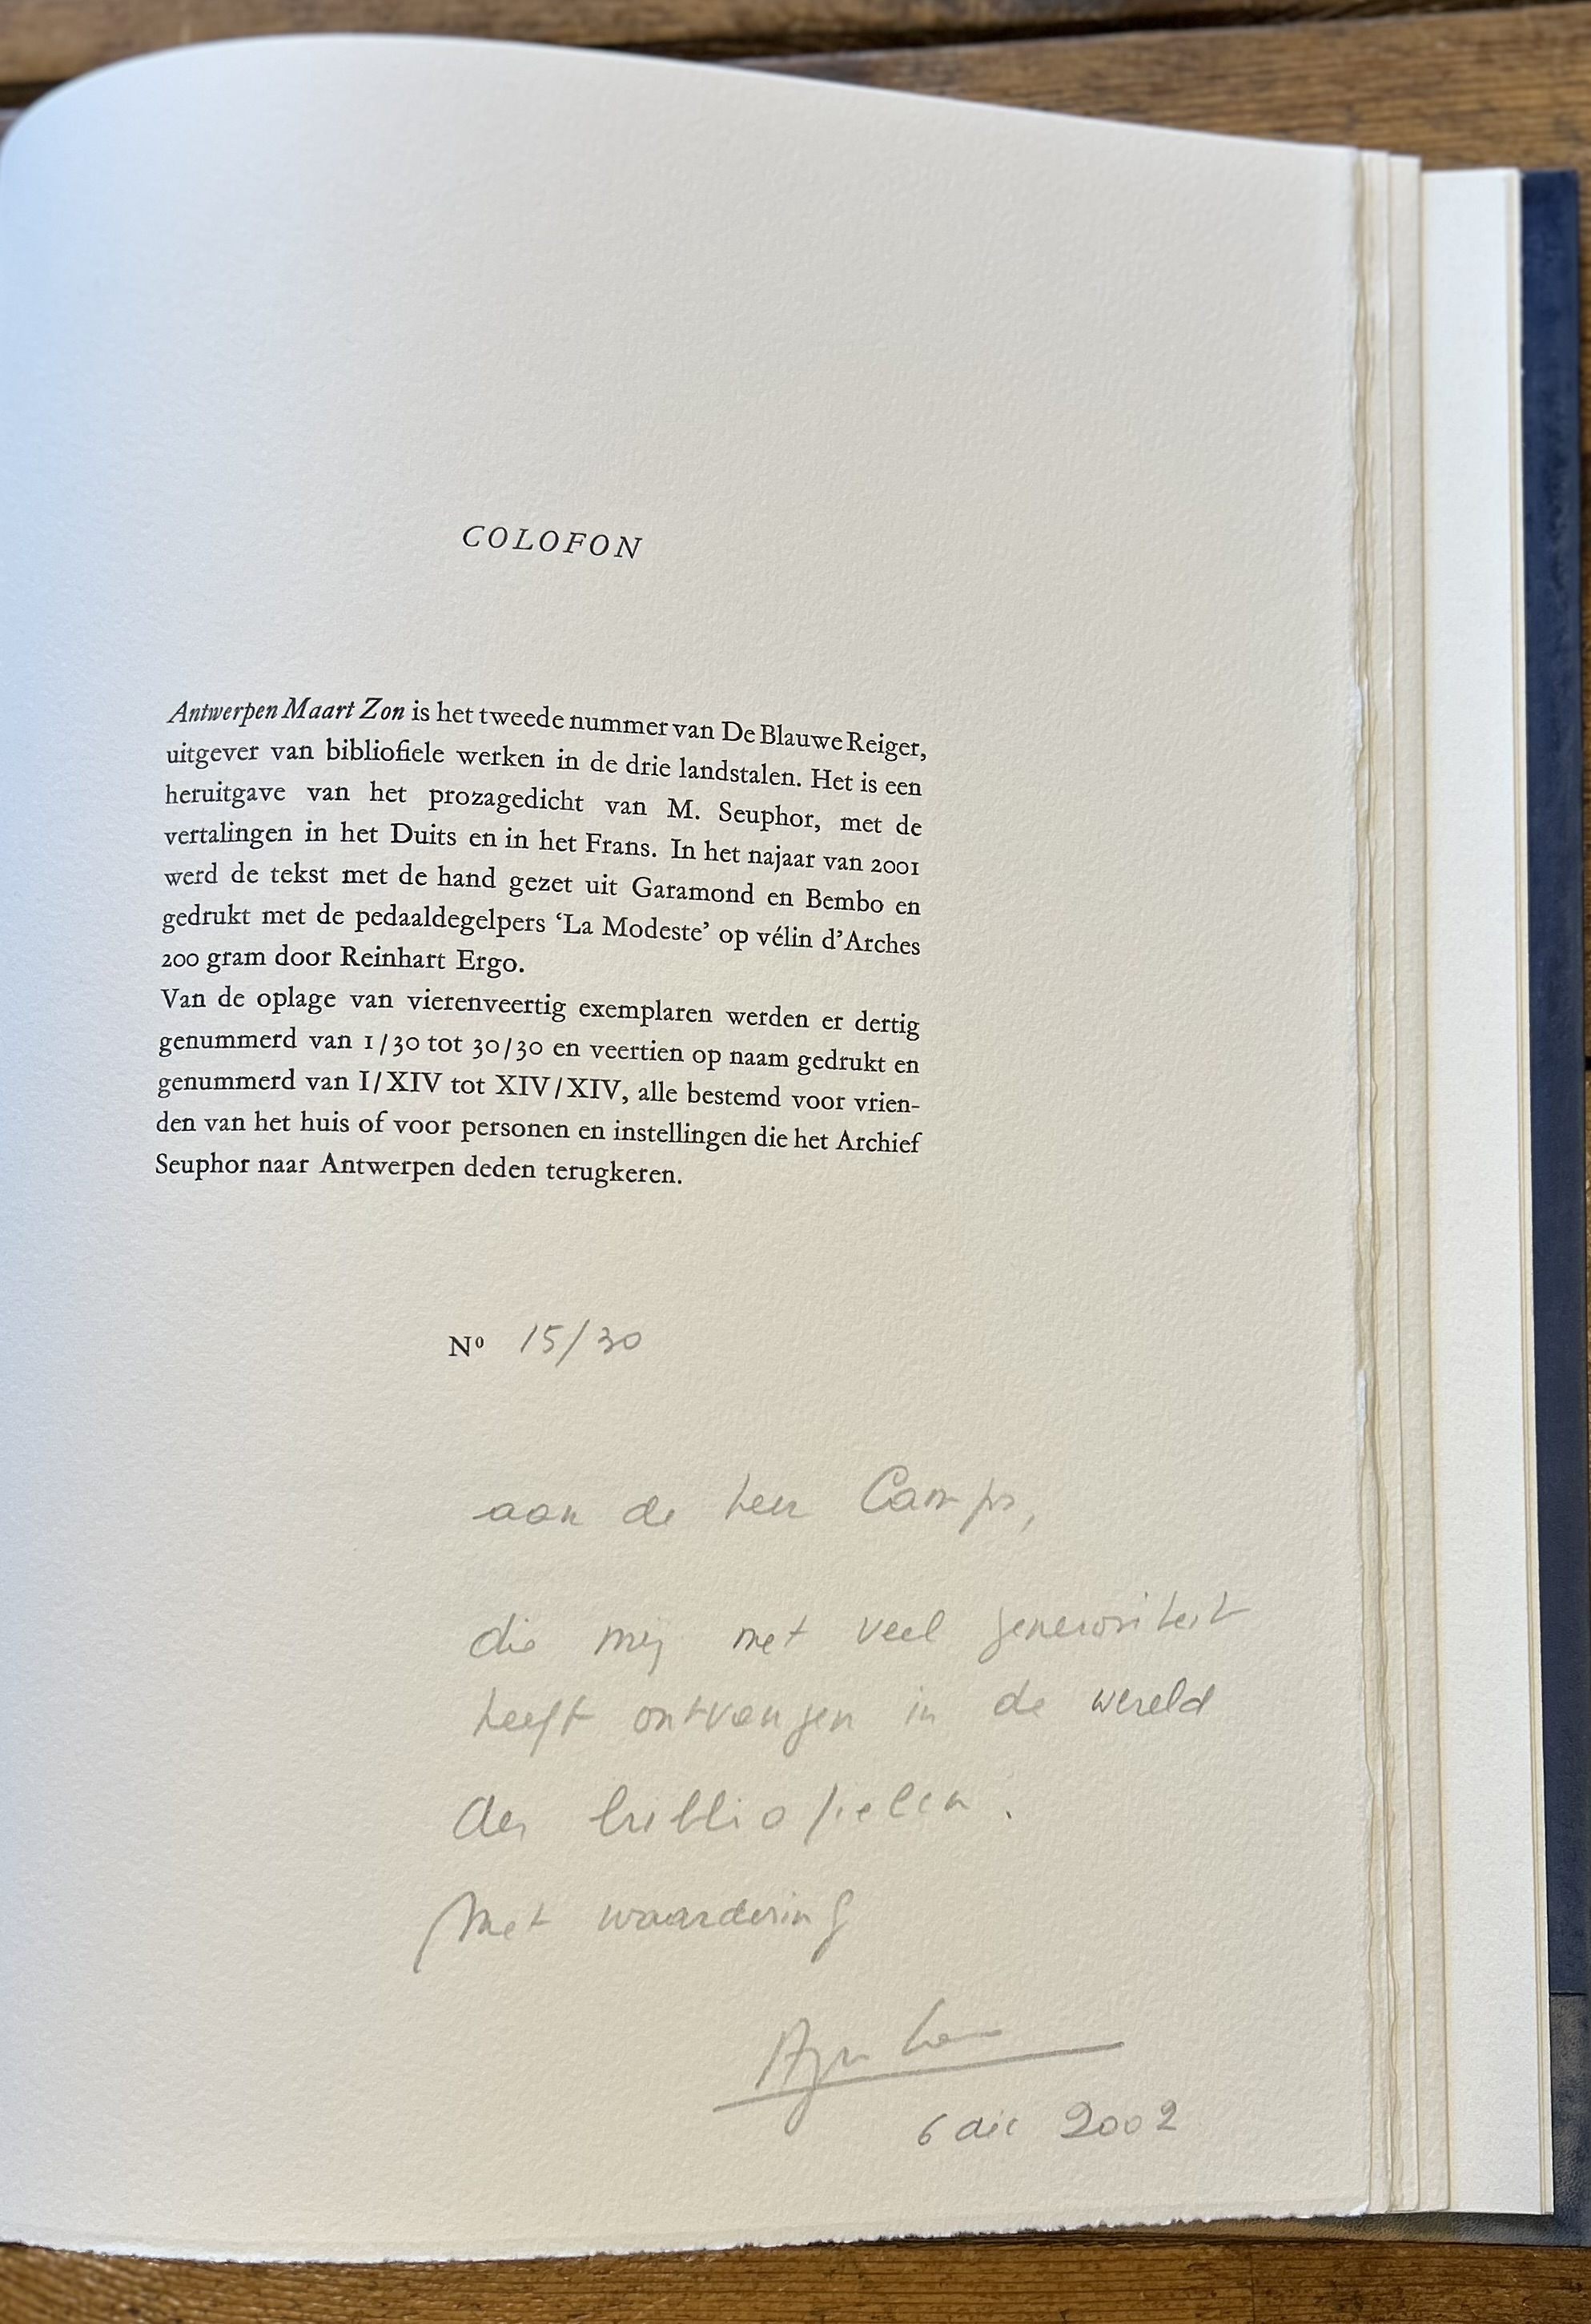 COLOFON
Antwerpen Maart Zon is het tweede nummer van De Blauwe Reiger,
uitgever van bibliofiele werken in de drie landstalen. Het is een
heruitgave van het prozagedicht van M. Seuphor, met de
vertalingen in het Duits en in het Frans. In het najaar van 2001
werd de tekst met de hand gezet uit Garamond en Bembo en
gedrukt met de pedaaldegelpers ‘La Modeste’ op vélin d’Arches
200 gram door Reinhart Ergo.
Van de oplage van vierenveertig exemplaren werden er dertig
genummerd van 1/30 tot 30/30 en veertien op naam gedrukt en
genummerd van I/XIV tot XIV/XIV, alle bestemd voor vrien-
den van het huis of voor personen en instellingen die het Archief
Seuphor naar Antwerpen deden terugkeren.
Nº 15/30
aan de heer Camps,
die mij met veel generositeit
heeft ontvangen in de wereld
der bibliofielen.
Met waardering
6 dec 2002